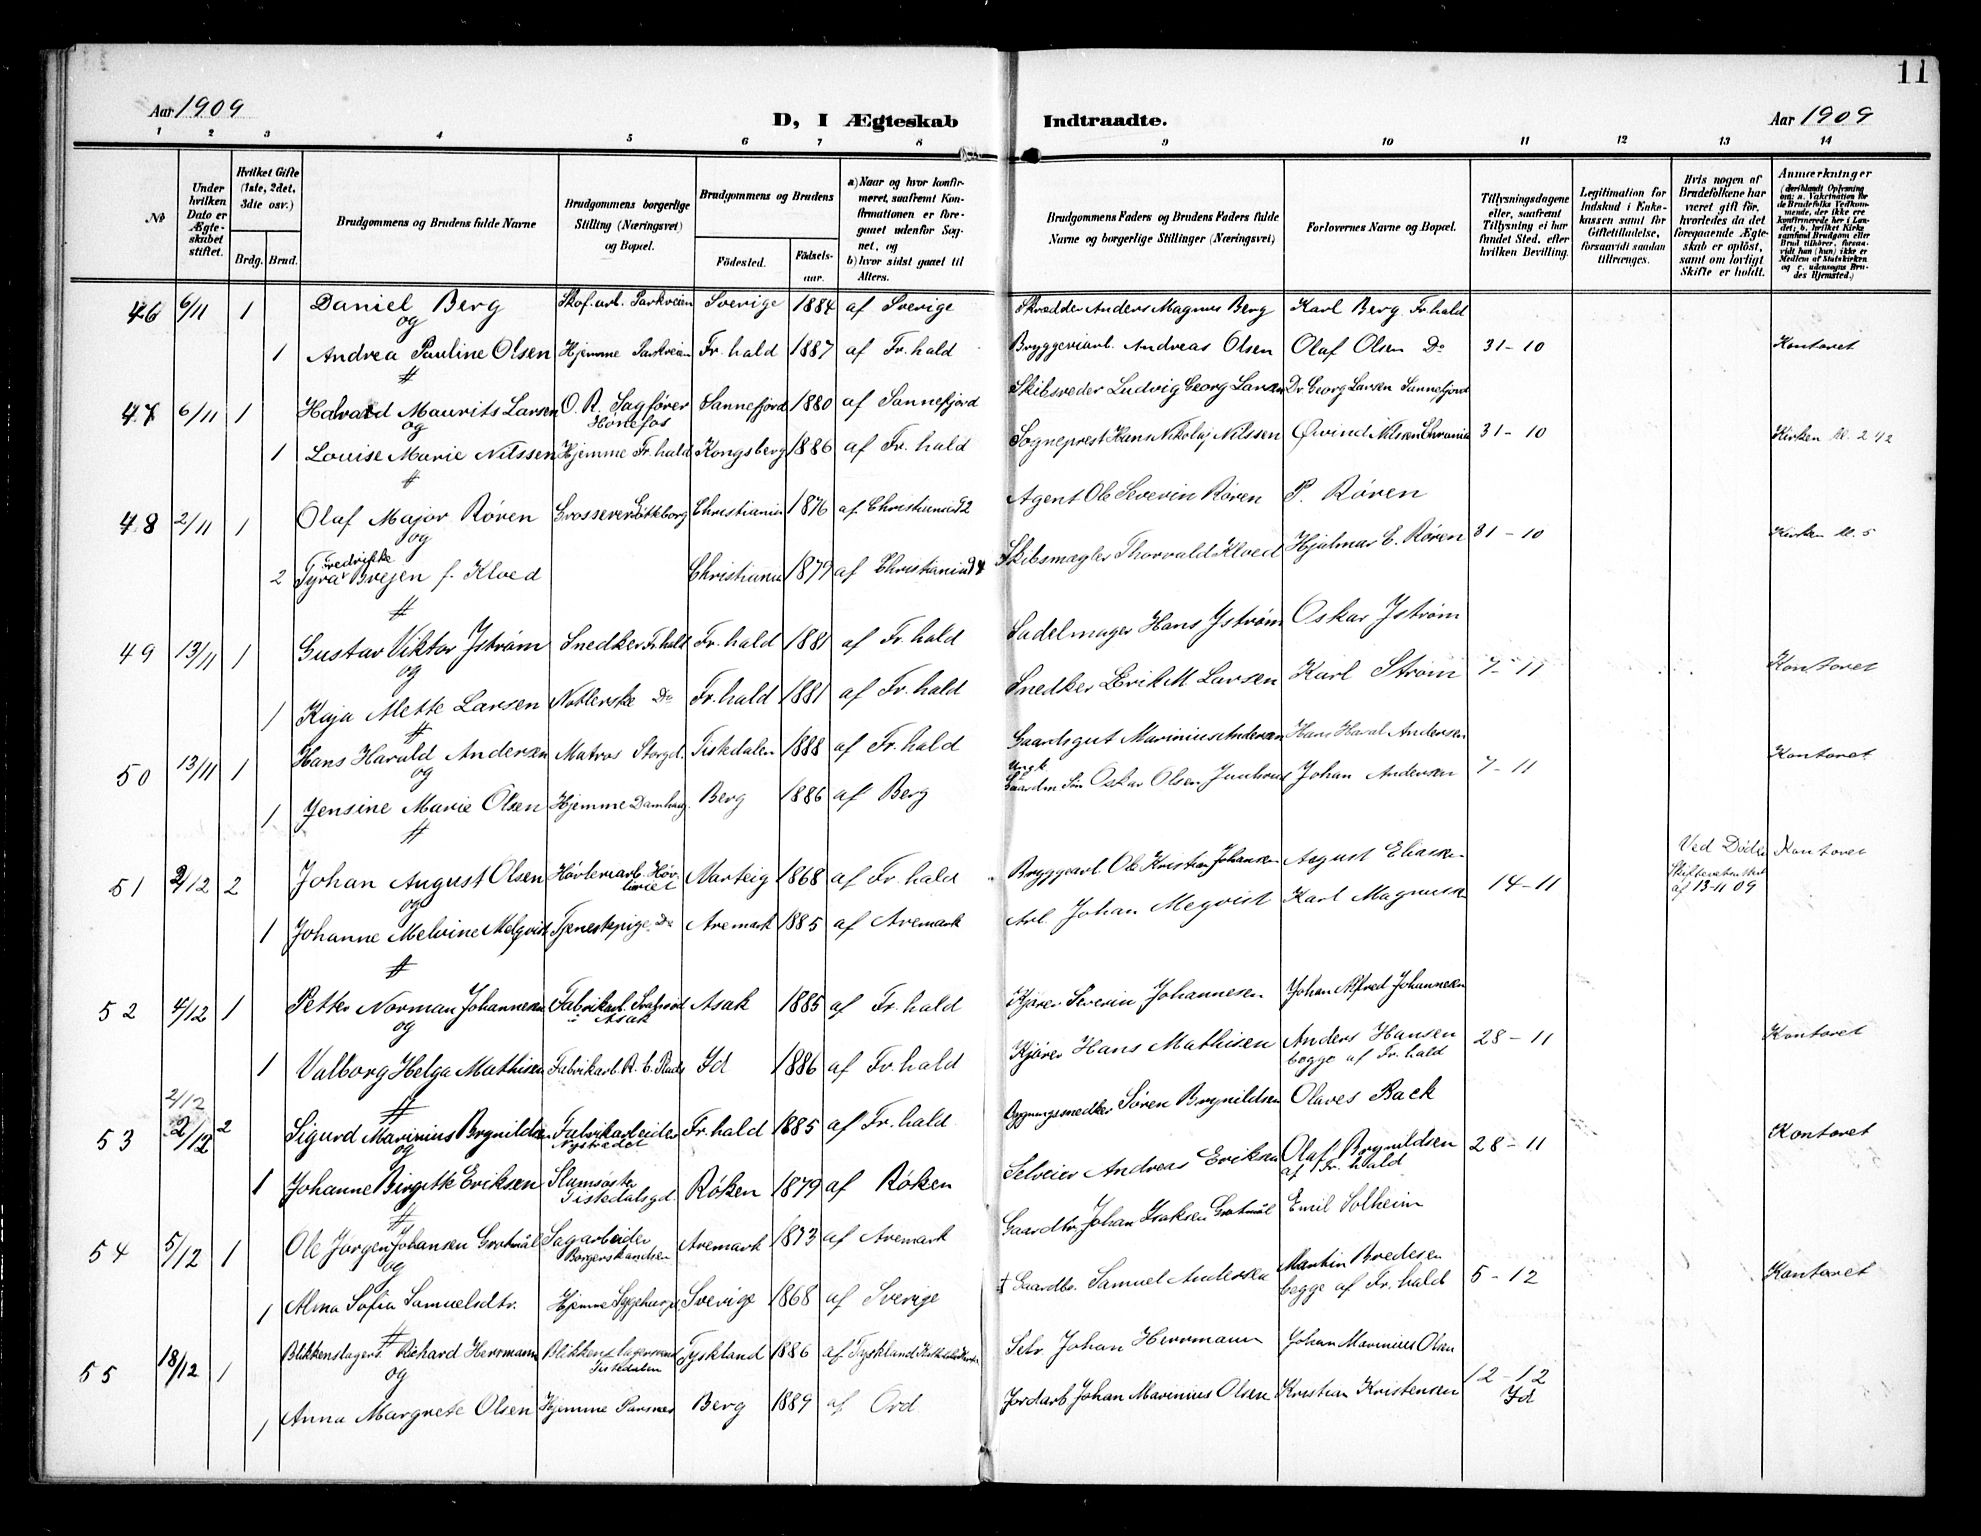 11
Aar 1909
D, I Ægteskab Indtraadte.
Aar 1909
1 2 3 4 5 6 7 8 9 10 11 12 13 14
No
Under hvilken Dato er Ægteskabet stiftet.
Hvilket Gifte (1ste, 2det, 3die osv.)
Brdg. Brud.
Brudgommens og Brudens fulde Navne
Brudgommens borgerlige Stilling (Næringsvei) og Bopæl.
Brudgommens og Brudens
Fødested.
Fødselsaar.
a) Naar og hvor konfirmeret, saafremt Konfirmationen er foregaaet udenfor Sognet, og
b) hvor sidst gaaet til Alters.
Brudgommens Faders og Brudens Faders fulde Navne og borgerlige Stillinger (Næringsvei)
Forlovernes Navne og Bopæl.
Tillysningsdagene eller, saafremt Tillysning ei har fundet Sted, efter hvilken Bevilling.
Legitimation for Indskud i Enkekassen samt for Giftetilladelse, forsaavidt saadan tiltrænges.
Hvis nogen af Brudefolkene har været gift før, hvorledes da det foregaaende Ægteskab er opløst, samt om lovligt Skifte er holdt.
Anmærkninger
46 6/11 1 Daniel Berg Skof. arb. Parkveien Sverige 1884 af Sverige Skrædder Anders Magnus Berg Karl Berg Fr.hald
og
1 Andrea Pauline Olsen Hjemme Parkveien Fr. hald 1887 af Fr. hald Bryggeriarb. Andreas Olsen Olaf Olsen Do 31-10 Kontoret
47 6/11 1 Halvard Maurits Larsen O. R. Sagfører Hønefos Sannefjord 1880 af Sannefjord Skibsreder Ludvig Georg Larsen Dr. Georg Larsen Sannefjord
og
1 Louise Marie Nilssen Hjemme Fr. hald Kongsberg 1886 af Fr. hald Sogneprest Hans Nikolaj Nilssen Øivind Nilsen Chrania 31-10 Kirken kl. 2 1/2
48 2/11 1 Olaf Major Røren Grosserer Göteborg Christiania 1876 af Christiania 92 Agent Ole Severin Røren P. Røren
og
2 Tyra Fredrikke Brejen f. Kloed Christiania 1879 af Christiania 94 Skibsmægler Thorvald Kloed Hjalmar E. Røren 31-10 Kirken kl. 5
49 13/11 1 Gustav Viktor Istrøm Snedker Fr.hald Fr. hald 1881 af Fr. hald Sadelmager Hans Istrøm Oskar Istrøm
og
1 Kaja Mette Larsen Do Fr. hald 1881 af Fr. hald Snedker Erik M Larsen Karl Strøm 7-11 Kontoret
50 13/11 1 Hans Harald Andersen Matros Storgd. Tistedalen 1888 af Fr. hald Gaardsgut Marinius Andersen Hans Haral Andersen
og
1 Jensine Marie Olsen Hjemme Damhaug. Berg 1886 af Berg Ungk. Gaardm Søn Oskar Olsen Johan Andersen 7-11 Kontoret
51 2/12 2 Johan August Olsen Høvleriarb. Høvleriet Varteig 1868 af Fr. hald Bryggearb. Ole Kristian Johansen August Eliasen Ved Død Kontoret
og
1 Johanne Melvine Melqvist Tjenestepige. Do Aremark 1885 af Aremark Arb. Johan Meqvist Karl Magnusen 14-11 af 13-11 09
52 4/12 1 Petter Norman Johannesen Fabrikarb. Asak Asak 1885 af Fr. hald Kjører Severin Johannesen Johan Alfred Johannesen
og
1 Valborg Helga Mathisen Fabrikarb. Id 1886 af Fr. hald Kjører Hans Mathisen Anders Hansen begge af Fr. hald 28-11 Kontoret
53 2/12 2/12 2 Sigurd Marinius Brynildsen Fabrikarbeider Nystredet Fr. hald 1885 af Fr. hald Bygningssnedker Søren Brynildsen Olaves Back
og
1 Johanne Birgitte Eriksen Tistedalsgd. Røken 1879 af Røken Selveier Andreas Eriksen Olaf Brynildsen af Fr. hald 28-11 Kontoret
54 5/12 1 Ole Jørgen Johansen Grotmål Sagarbeider Borgerskandsen Aremark 1873 af Aremark Gaardbr. Johan Isaksen Grotmål Emil Solheim
og
1 Alma Sofia Samuelsdtr. Hjemme Sverige 1868 af Sverige ‡ Gaardbr. Samuel Andersen Martin Bredesen begge af Fr. hald 5-12 Kontoret
55 18/12 1 Blikkenslager Richard Herrmann Blikkenslagersvend Tistedalen Tyskland 1886 af Tyskland Johan Herrmann Johan Marinius Olsen
og
1 Anna Margrete Olsen Hjemme Berg 1889 af Ord Jordarb Johan Marinius Olsen Kristian Kristensen 12-12 Id